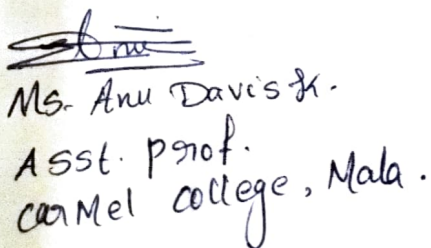 Ms. Anu Davis K.
Asst. prof.
Carmel college, Mala.